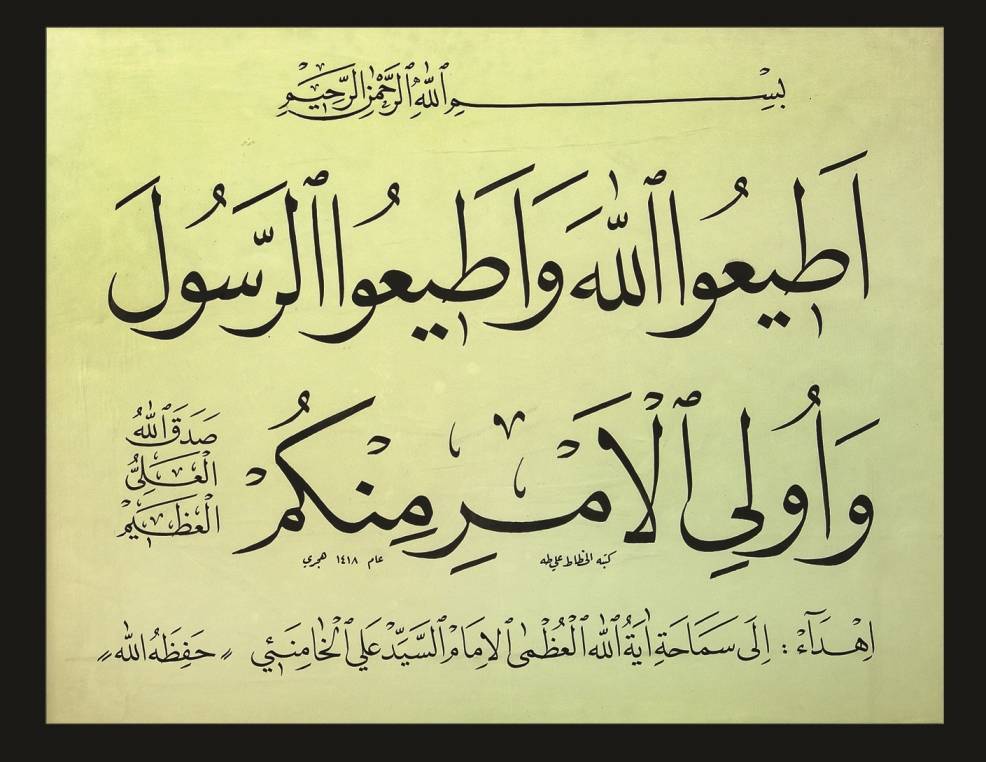 بِسْمِ اللهِ الرَّحْمٰنِ الرَّحِيمِ
اَطِيعُوا اللهَ وَاَطِيعُوا الرَّسُولَ
وَاُولِي الْاَمْرِ مِنْكُمْ
صَدَقَ اللهُ
الْعَلِيُّ
الْعَظِيمُ
كتبه الخطاط علي طه
عام ١٤١٨ هجري
اِهْدَآءْ : اِلَى سَمَاحَةِ اٰيَةُ اللهِ الْعُظْمٰى الْاِمَامْ السَّيِّدْ عَلِي الْخَامِنَئِي " حَفِظَهُ الله "